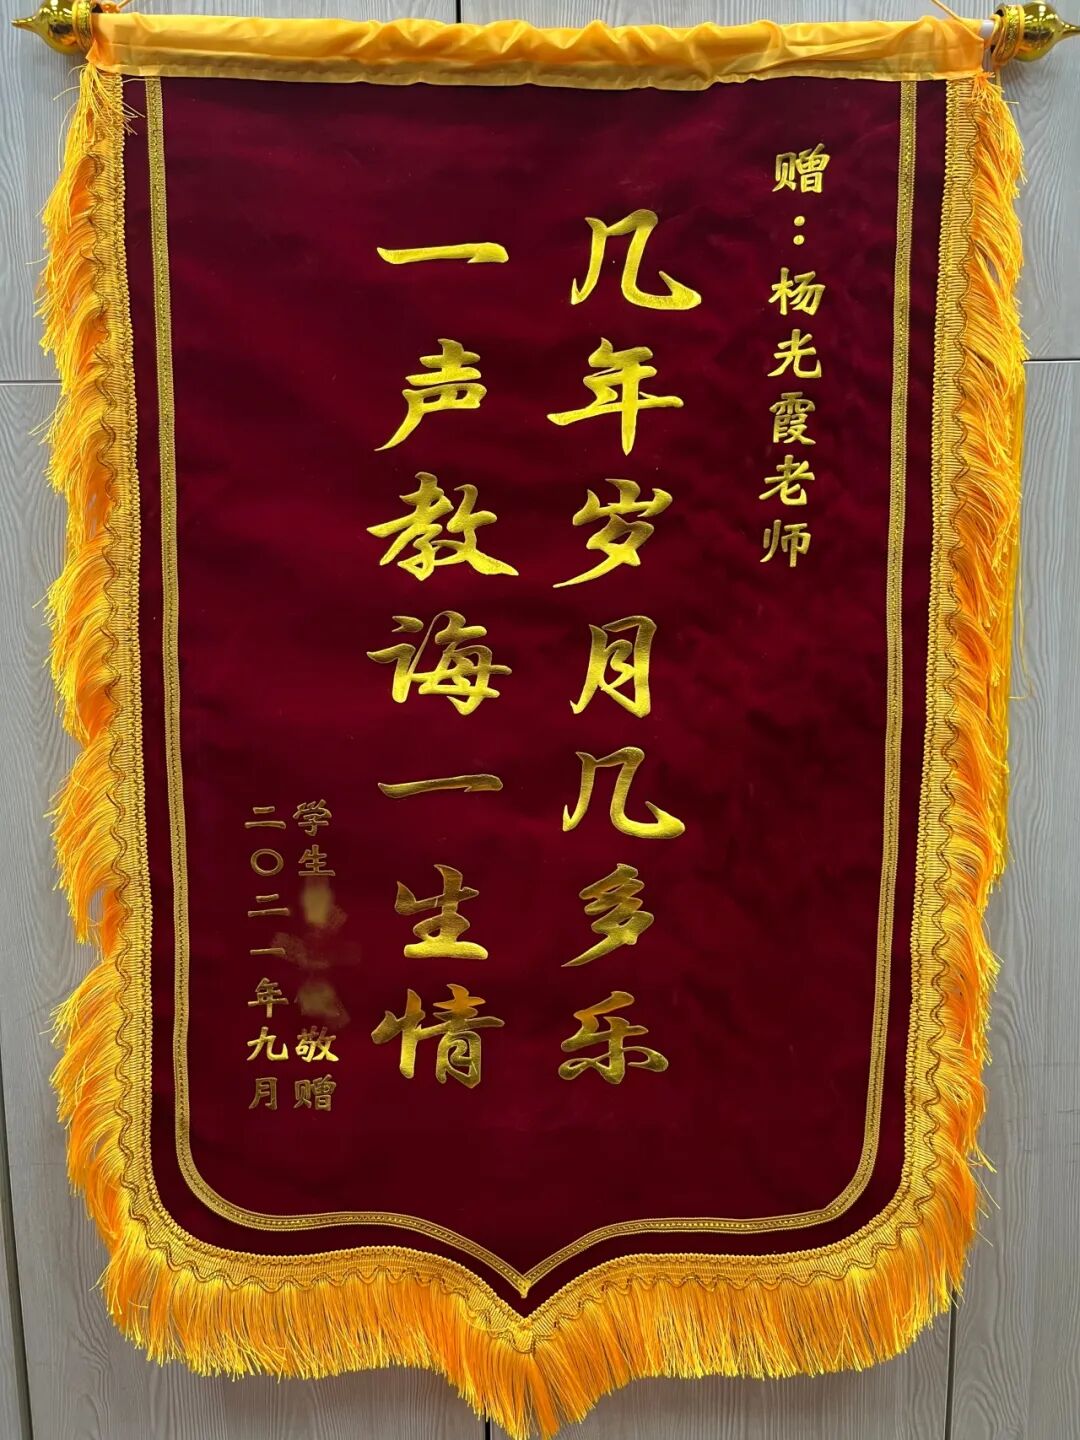 赠：杨光霞老师
几年岁月几多乐
一声教诲一生情
学生敬赠
二〇二一年九月